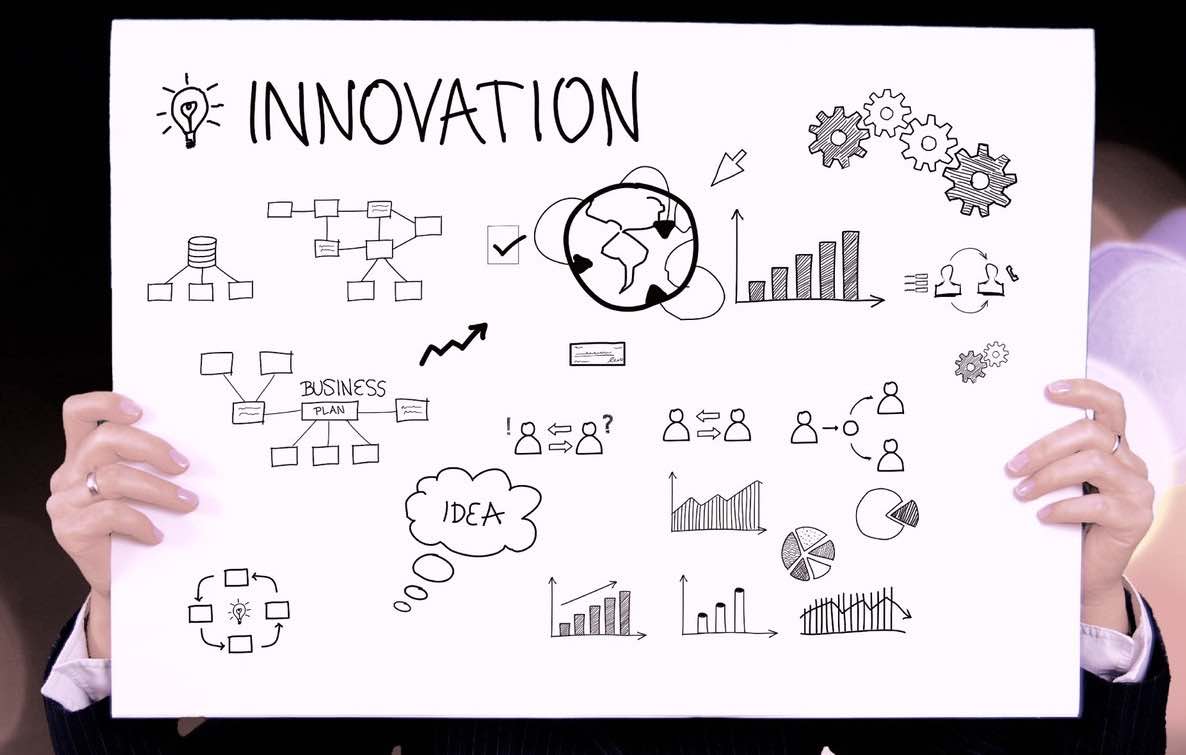 INNOVATION
BUSINESS
PLAN
!
?
IDEA